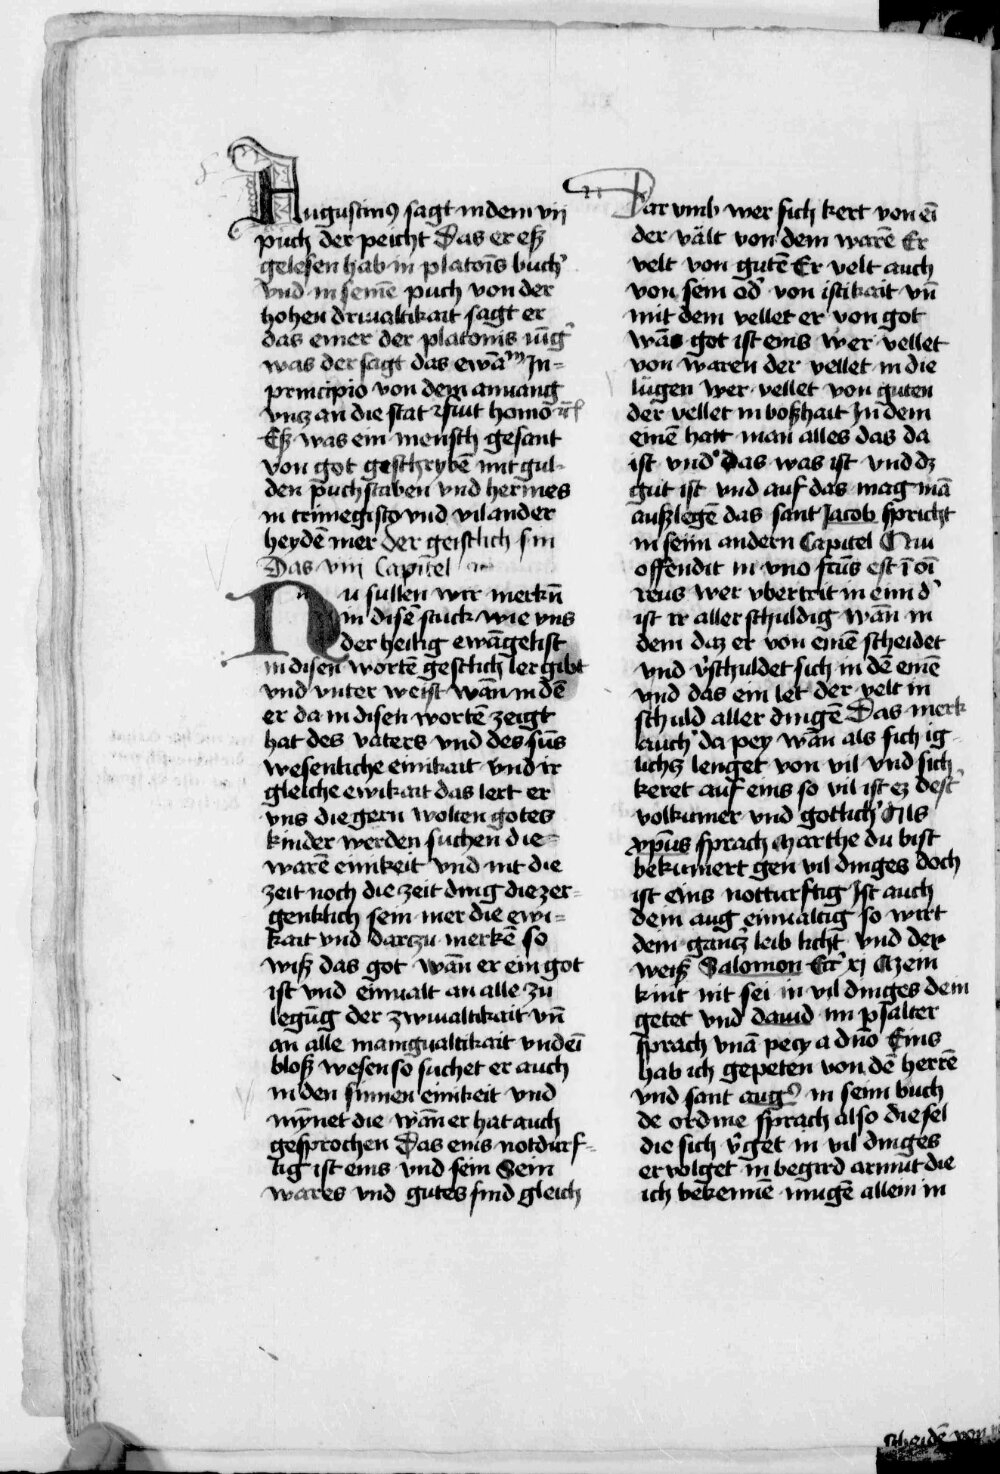 Augustinꝰ sagt in dem vij
puch der peicht Das er eß
gelesen hab in platōis buch
vnd in seinē puch von der
hohen driualtikait sagt er
das einer der platonis iūg
was der sagt das ewāᵐ In=
principio von dem anuang
vncz an die stat fuit homō
Eß was ein mensch gesant
von got geschrybē mit gul
den puchstaben vnd hermes
in trimegisto vnd vil ander
heydē mer der geistlich sin
Das viij Capitel
Nu sullen wir merkn̄
in disē stuck wie vns
der heilig ewāgelist
in disen wortē gestlich ler gibt
vnd vnter weist wān in dē
er da in disen wortē zeigt
hat des vaters vnd des sūs
wesenliche einikait vnd ir
gleiche ewikait das lert er
vns die gern wolten gotes
kinder werden suchen die=
warē einikeit vnd nit die
zeit noch die zeit ding die zer=
genklich sein mer die ewi=
kait vnd darczu merkē so
wiß das got wān er ein got
ist vnd einualt an alle zu
legūg der zwiualtikait vn̄
an alle manigualtikait vnd eī
bloß wesen so suchet er auch
in den sinnen einikeit vnd
mȳnet die wān er hat auch
gesprochen Das eins notdurf=
tig ist eins vnd sein Sein
wares vnd gutes sind gleich
Dar vmb wer sich kert von eī
der vält von dem warē Er
velt von gutē Er velt auch
von sein od' von istikait vn̄
mit dem vellet er von got
wān got ist eins wer vellet
von waren der vellet in die
lügen wer vellet von guten
der vellet in boßhait In dem
einē hatt man alles das da
ist vnd das was ist vnd dz
gut ist vnd auf das mag mā
außlegē das sant Jacob spricht
in seim andern Capitel Qui
offendit in vno fcūs est ī oī
reus wer vbertrit in eim d'
ist ir aller schuldig wān in
dem daz er von einē scheidet
vnd v'schuldet sich in dē einē
vnd das ein let der velt in
schuld aller dingē Das merk
auch da pey wān als sich ig
lichs lenget von vil vnd sich
keret auf eins so vil ist ez dest'
volkumer vnd gotlich' Als
xp̄us sprach Martha du bist
bekumert gen vil dinges doch
ist eins notturftig Ist auch
dem aug einualtig so wirt
dein gancz leib licht vnd der
weiß Salomon Ecc' xj Mein
kint nit sei in vil dinges dein
getet vnd dauid im psalter
sprach vnā pecy a dn̄o Eins
hab ich gepeten von dē herrē
vnd sant augꝰ in seim buch
de ordine sprach also die sel
die sich v'get in vil dinges
er volget in begird armut die
ich bekennē mugē allein in